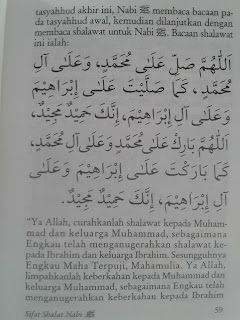 Pada tasyahhud akhir ini, Nabi ﷺ membaca bacaan pa-
da tasyahhud awal, kemudian dilanjutkan dengan
membaca shalawat untuk Nabi ﷺ. Bacaan shalawat
ini ialah:
اَللّٰهُمَّ صَلِّ عَلَى مُحَمَّدٍ، وَعَلَى آلِ
مُحَمَّدٍ، كَمَا صَلَّيْتَ عَلَى إِبْرَاهِيْمَ
وَعَلَى آلِ إِبْرَاهِيْمَ، إِنَّكَ حَمِيْدٌ مَجِيْدٌ،
اَللّٰهُمَّ بَارِكْ عَلَى مُحَمَّدٍ وَعَلَى آلِ مُحَمَّدٍ،
كَمَا بَارَكْتَ عَلَى إِبْرَاهِيْمَ وَعَلَى
آلِ إِبْرَاهِيْمَ، إِنَّكَ حَمِيْدٌ مَجِيْدٌ.
"Ya Allah, curahkanlah shalawat kepada Muham-
mad dan keluarga Muhammad, sebagaimana
Engkau telah menganugerahkan shalawat ke-
pada Ibrahim dan keluarga Ibrahim. Sesungguhnya
Engkau Maha Terpuji, Mahamulia. Ya Allah,
limpahkanlah keberkahan kepada Muhammad dan
keluarga Muhammad, sebagaimana Engkau telah
menganugerahkan keberkahan kepada Ibrahim
Sifat Shalat Nabi ﷺ 59